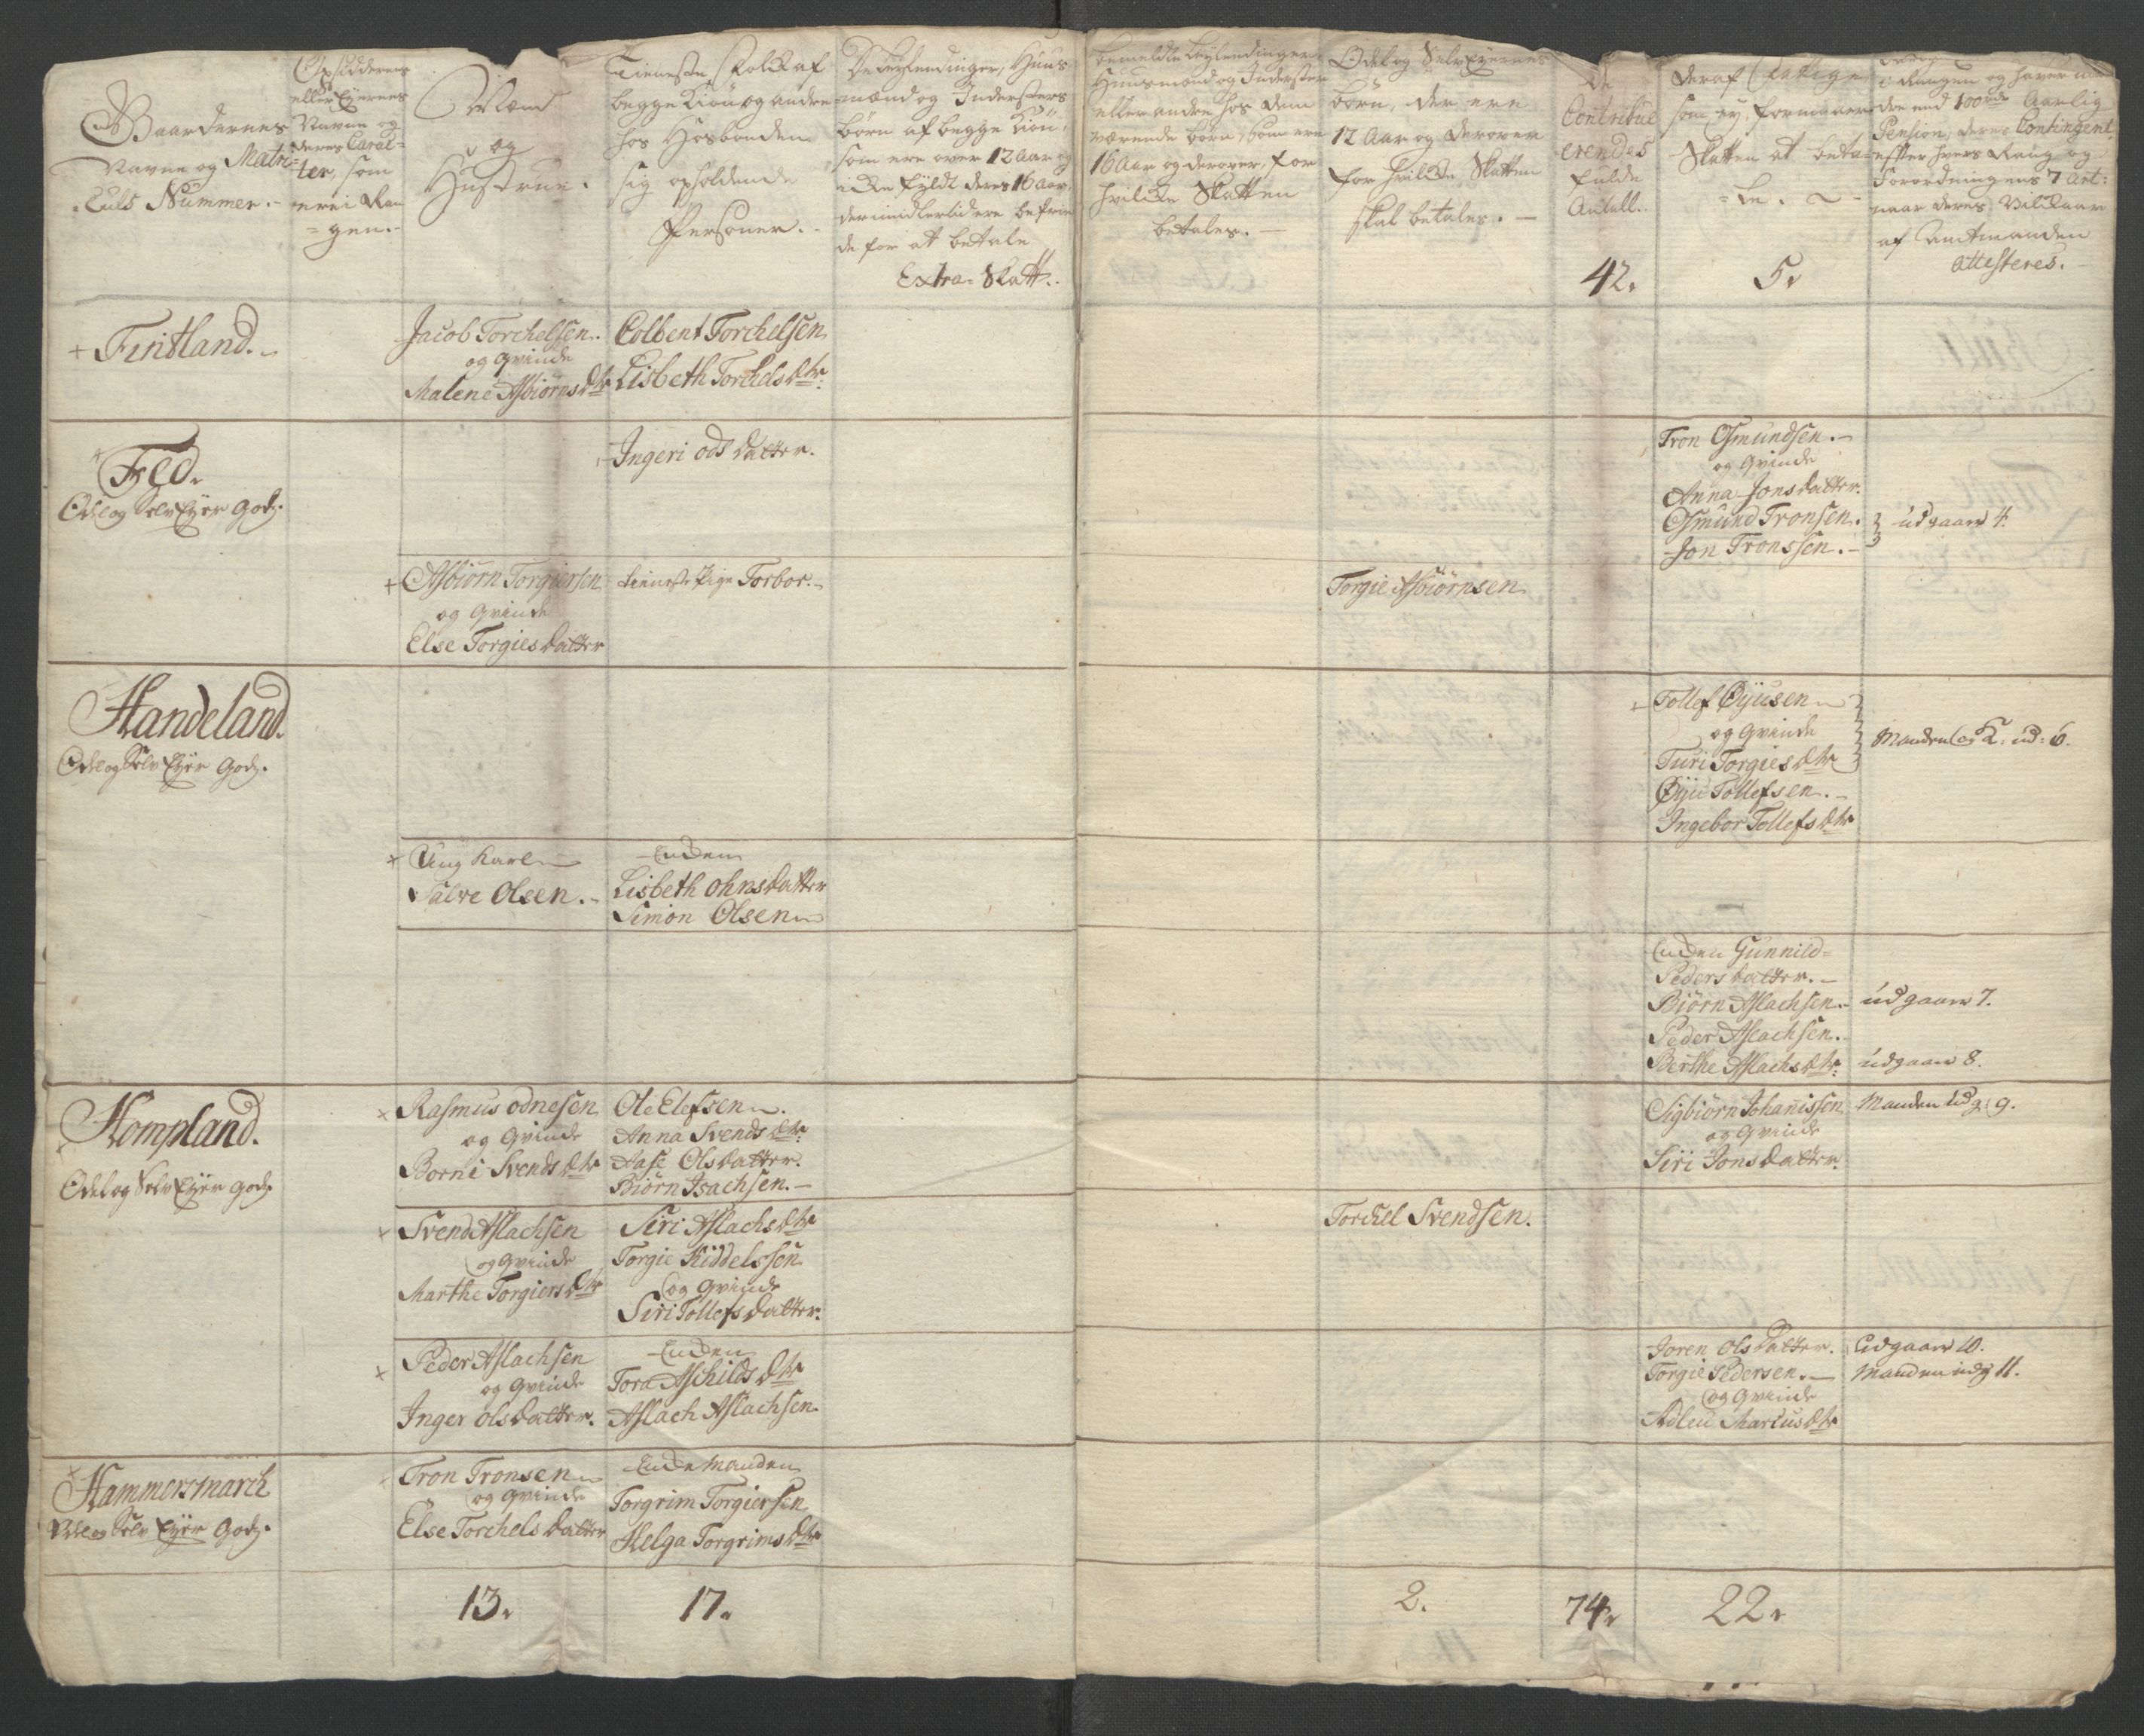 Gaardernes
Navne og Matri-
culs Nummer.-
Opsiddernes
eller Eyernes
Navne og
deres Carac-
ter, som
ere i Ran
gen.-
Mænd
og
Hustrue.
Tieneste Folk af
begge Kiøn og andre
hos Hosbonden
sig opholdende
Personer.-
De Leylendinger, Huus
mænd og Indersters
børn af begge Kiøn,
som ere over 12 Aar og
icke fyldt deres 16 Aar,
der imidlertid ere befri
de for at betale
Extra-Skatt.
bemeldte Leylendinger
Huusmænd og Inderster
eller andre hos dem
værende børn, som ere
16 Aar og derover, for
hvilcke Skatten
betales.-
Odel og Selv Eyernes
børn, der ere
12 Aar og derover
for hvilcke Skatten
skal betales.-
De
Contribue
erendes
fulde
Antall.
42.
Deraf Fattige
som ey formaaer
Skatten at beta-
le.
5.
i Rangen og haver min
dre end 100 rdr Aarlig
Pension, deres Contingent
efter hvers Rang og
Forordningens 7 Art:
naar deres Vilkaar
af Amtmanden
attesteres.-
+ Fintland.
Jacob Torchelsen.
og Qvinde
Malene Asbiørns dtr
Colbent Torchelsen
Lisbeth Torchels dtr:
+ Fed.
Odel og Selv Eyer Godz.
Ingeri ods datter.
Tron Osmundsen.-
og Qvinde
Anna Jons datter.
Osmund Tronsen.
Jon Tronssen.-
udgaaer 4.
+ Asbiørn Torgiersen
og Qvinde
Else Torgies datter
tieneste Pige Torbor.-
Torgie Asbiørnsen
Handeland.
Odel og Selv Eyer Godz.
Tollef Øyusen
og Qvinde
Turi Torgies dtr
Øyu Tollefsen.-
Ingebor Tollefs dtr
Manden og K. ud: 6.
+ Ung Karl
Salve Olsen.-
Enken
Lisbeth ohns datter
Simon Olsen
Enken Gunnild-
Peders datter.-
Biørn Aslachsen.-
Peder Aslachsen.
Berthe Aslachs dtr:
udgaaer 7.
udgaaer 8.
Hompland.
Odel og Selv Eyer Godz
+ Rasmus odnesen
og Qvinde
Borni Svends dtr
Ole Elefsen.
Anna Svends dtr:
Aase Ols datter.
Biørn Isachsen.-
Sigbiørn Johanissen
og Qvinde
Siri Jons datter.
Manden udg 9.
+ Svend Aslachsen
og Qvinde
Marthe Torgiers dtr
Siri Aslachs dtr
Torgie Kiddelssen
og Qvinde
Siri Tollefs datter.
Torckel Svendsen.
+ Peder Aslachsen
og Qvinde
Inger ols datter.
Enken
Tora Aschilds dtr
Aslach Aslachsen.
Joren Ols datter.
Torgie Pedersen.-
og Qvinde
Adleu Marcus dtr
Udgaaer 10.
Manden udg 11.
+ Hammersmarch
Odel og Selv Eyer Godz.
Tron Tronsen
og Qvinde
Else Torchels datter
Enkemanden
Torgrim Torgiersen
Helga Torgrims dtr
13.
17.
2.
74.
22.